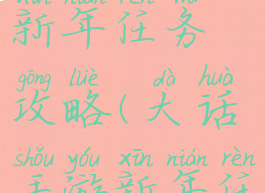 xīn nián rèn wu
新年任务
gōng lüè dà huà
攻略(大话
shǒu yóu xīn nián rèn
手游新年任